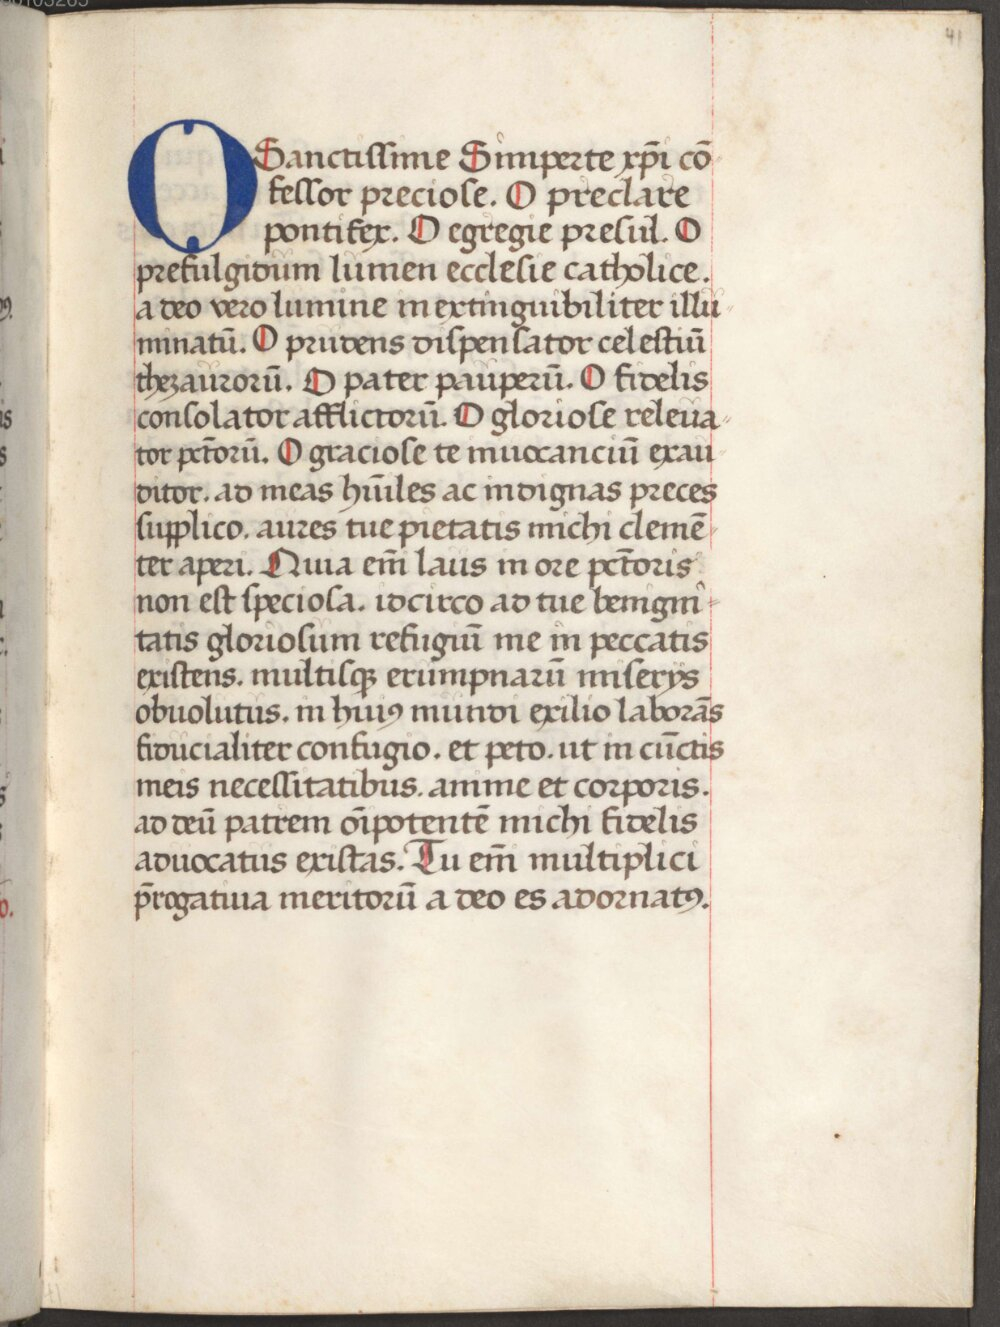 41
O Sanctissime Simperte xp̄i cō
fessor preciose. O preclare
pontifex. O egregie presul. O
prefulgidum lumen ecclesie catholice.
a deo vero lumine inextinguibiliter illu
minatū. O prudens dispensator celestiū
thezaurorū. O pater pauperū. O fidelis
consolator afflictorū. O gloriose releua
tor pc̄torū. O graciose te inuocanciū exau
ditor. ad meas hūiles ac indignas preces
supplico. aures tue pietatis michi clemē
ter aperi. Quia em̄ laus in ore pc̄toris
non est speciosa. idcirco ad tue benigni
tatis gloriosum refugiū me in peccatis
existens. multisqꝫ erumpnarū miserijs
obuolutus. in huiꝰ mundi exilio laborās
fiducialiter confugio. et peto. ut in cūctis
meis necessitatibus. anime et corporis.
ad deū patrem oīpotentē michi fidelis
aduocatus existas. Tu em̄ multiplici
p̄rogatiua meritorū a deo es adornatꝰ.